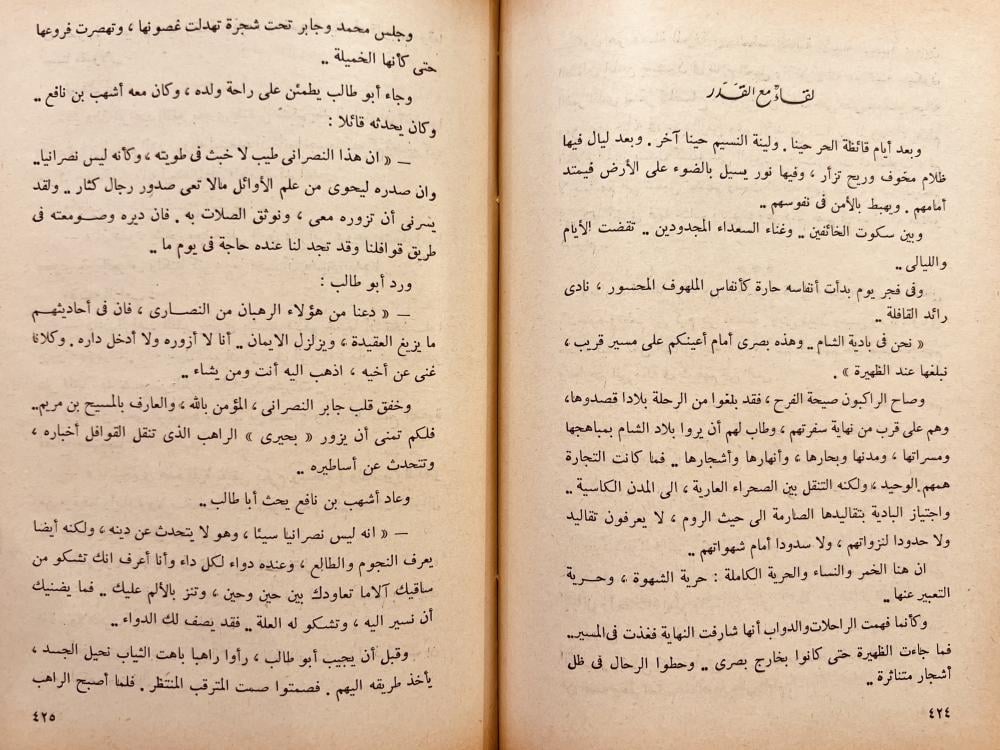 لقاء مع القدر
وبعد أيام قائظة الحر حينا . ولينة النسيم حينا آخر . وبعد ليال فيها
ظلام مخوف وريح تزأر ، وفيها نور يسيل بالضوء على الأرض فيمتد
أمامهم . ويهبط بالأمن فى نفوسهم ..
وبين سكوت الخائفين .. وغناء السعداء المجدودين .. تقضت الأيام
والليالى ..
وفى فجر يوم بدأت أنفاسه حارة كأنفاس الملهوف المحسور ، نادى
رائد القافلة ..
« نحن فى بادية الشام .. وهذه بصرى أمام أعينكم على مسير قريب ،
نبلغها عند الظهيرة » .
وصاح الراكبون صيحة الفرح ، فقد بلغوا من الرحلة بلادا قصدوها،
وهم على قرب من نهاية سفرتهم ، وطاب لهم أن يروا بلاد الشام بمباهجها
ومسراتها ، ومدنها وبحارها ، وأنهارها وأشجارها .. فما كانت التجارة
همهم الوحيد ، ولكنه التنقل بين الصحراء العارية ، الى المدن الكاسية ..
واجتياز البادية بتقاليدها الصارمة الى حيث الروم ، لا يعرفون تقاليد
ولا حدودا لنزواتهم ، ولا سدودا أمام شهواتهم ..
ان هنا الخمر والنساء والحرية الكاملة : حرية الشهوة ، وحــرية
التعبير عنها ..
وكأنما فهمت الراحلات والدواب أنها شارفت النهاية فغذت فى المسير..
فما جاءت الظهيرة حتى كانوا بخارج بصرى .. وحطوا الرحال فى ظل
أشجار متناثرة ..
٤٢٤
وجلس محمد وجابر تحت شجرة تهدلت غصونها ، وتهصرت فروعها
حتى كأنها الخميلة ..
وجاء أبو طالب يطمئن على راحة ولده ، وكان معه أشهب بن نافع ..
وكان يحدثه قائلا :
— « ان هذا النصرانى طيب لا خبث فى طويته ، وكأنه ليس نصرانيا..
وان صدره ليحوى من علم الأوائل مالا تعى صدور رجال كثار .. ولقد
يسرنى أن تزوره معى ، ونوثق الصلات به . فان ديره وصــومعته فى
طريق قوافلنا وقد تجد لنا عنده حاجة فى يوم ما ..
ورد أبو طالب :
— « دعنا من هؤلاء الرهبان من النصــارى ، فان فى أحاديثهــم
ما يزيغ العقيدة ، ويزلزل الايمان .. أنا لا أزوره ولا أدخل داره . وكلانا
غنى عن أخيه ، اذهب اليه أنت ومن يشاء ..
وخفق قلب جابر النصرانى ، المؤمن بالله ، والعارف بالمسيح بن مريم..
فلكم تمنى أن يزور « بحيرى » الراهب الذى تنقل القوافل أخباره ،
وتتحدث عن أساطيره ..
وعاد أشهب بن نافع يحث أبا طالب ..
— « انه ليس نصرانيا سيئا ، وهو لا يتحدث عن دينه ، ولكنه أيضا
يعرف النجوم والطالع ، وعنده دواء لكل داء وأنا أعرف انك تشكو من
ساقيك آلاما تعاودك بين حين وحين ، وتنز بالألم عليك .. فما يضنيك
أن نسير اليه ، وتشكو له العلة .. فقد يصف لك الدواء ..
وقبل أن يجيب أبو طالب ، رأوا راهبا باهت الثياب نحيل الجسد ،
يأخذ طريقه اليهم . فصمتوا صمت المترقب المنتظر . فلما أصبح الراهب
٤٢٥